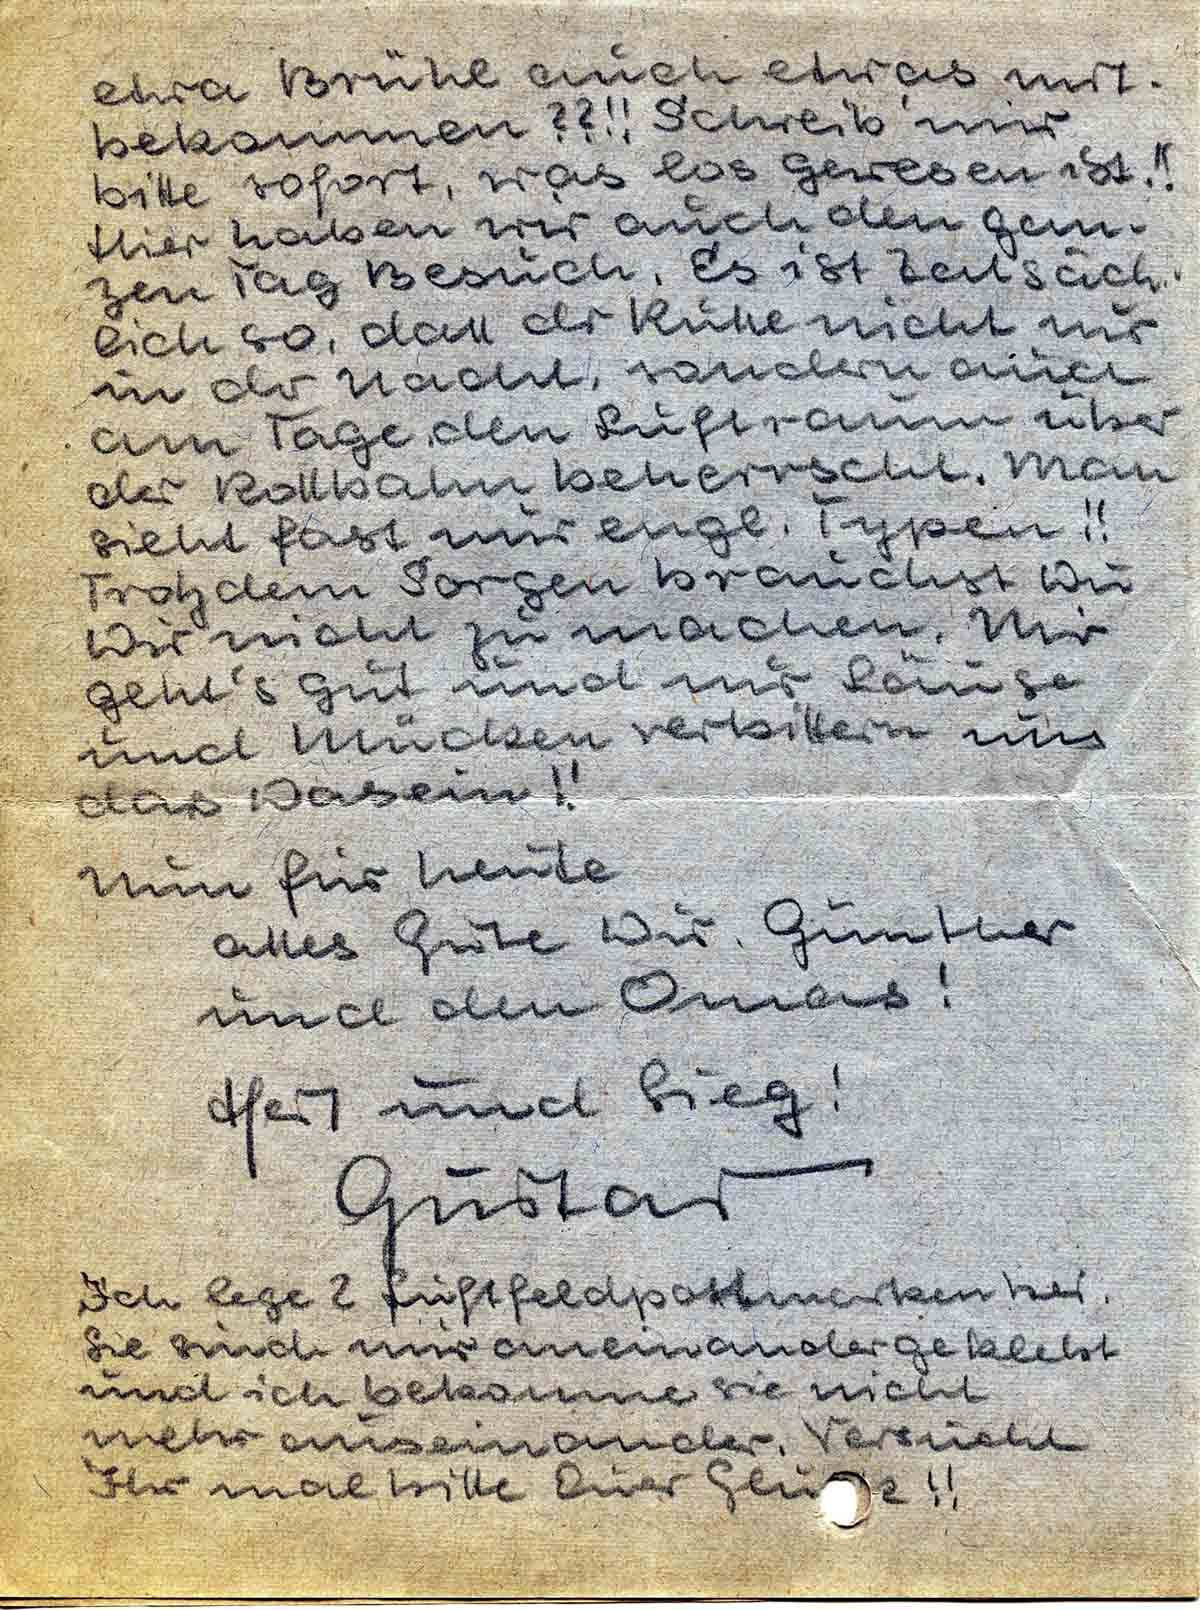 etwa Brühl auch etwas mit-
bekommen ??!! Schreib' mir
bitte sofort, was los gewesen ist!!
Hier haben wir auch den gan-
zen Tag Besuch. Es ist tatsäch-
lich so, daß dr Rußke nicht nur
in dr Nacht, sondern auch
am Tage den Luftraum über
der Rollbahn beherrscht. Man
sieht fast nur engl. Typen!!
Trotzdem Sorgen brauchst Du
Dir nicht zu machen. Mir
geht's gut und nur Läuse
und Mücken verbittern uns
das Dasein!!
Nun für heute
alles Gute Dir, Günther
und den Omas!
Heil und Sieg!
Gustav
Ich lege 2 Luftfeldpostmarken bei.
Sie sind mir aneinandergeklebt
und ich bekomme sie nicht
mehr auseinander. Versucht
Ihr mal bitte Euer Glück!!